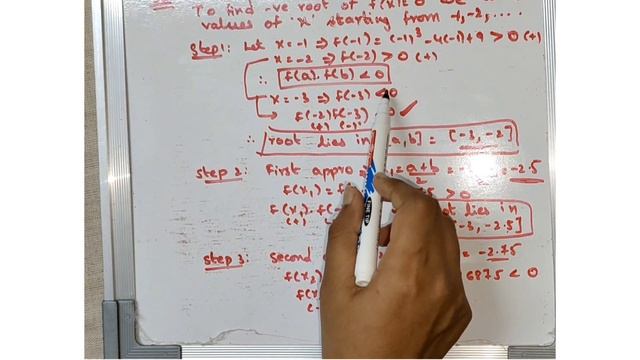 To find -ve root of f(x)=0
values of 'x' starting from -1, -2, ....
Step1: Let x = -1 ⇒ f(-1) = (-1)³ - 4(-1) + 9 > 0 (+)
x = -2 ⇒ f(-2) > 0 (+)
∴ f(a).f(b) < 0
x = -3 ⇒ f(-3) < 0
f(-2)f(-3) 0 ✓
(+) (-)
∴ root lies in a,b] = [-3, -2]
Step 2: First appro = a+b/2 = -2.5
f(x₁) = > 0
f(x₁). lies in
(+) -3, -2.5]
Step 3: Second = -2.75
f(x₂) 6875 < 0